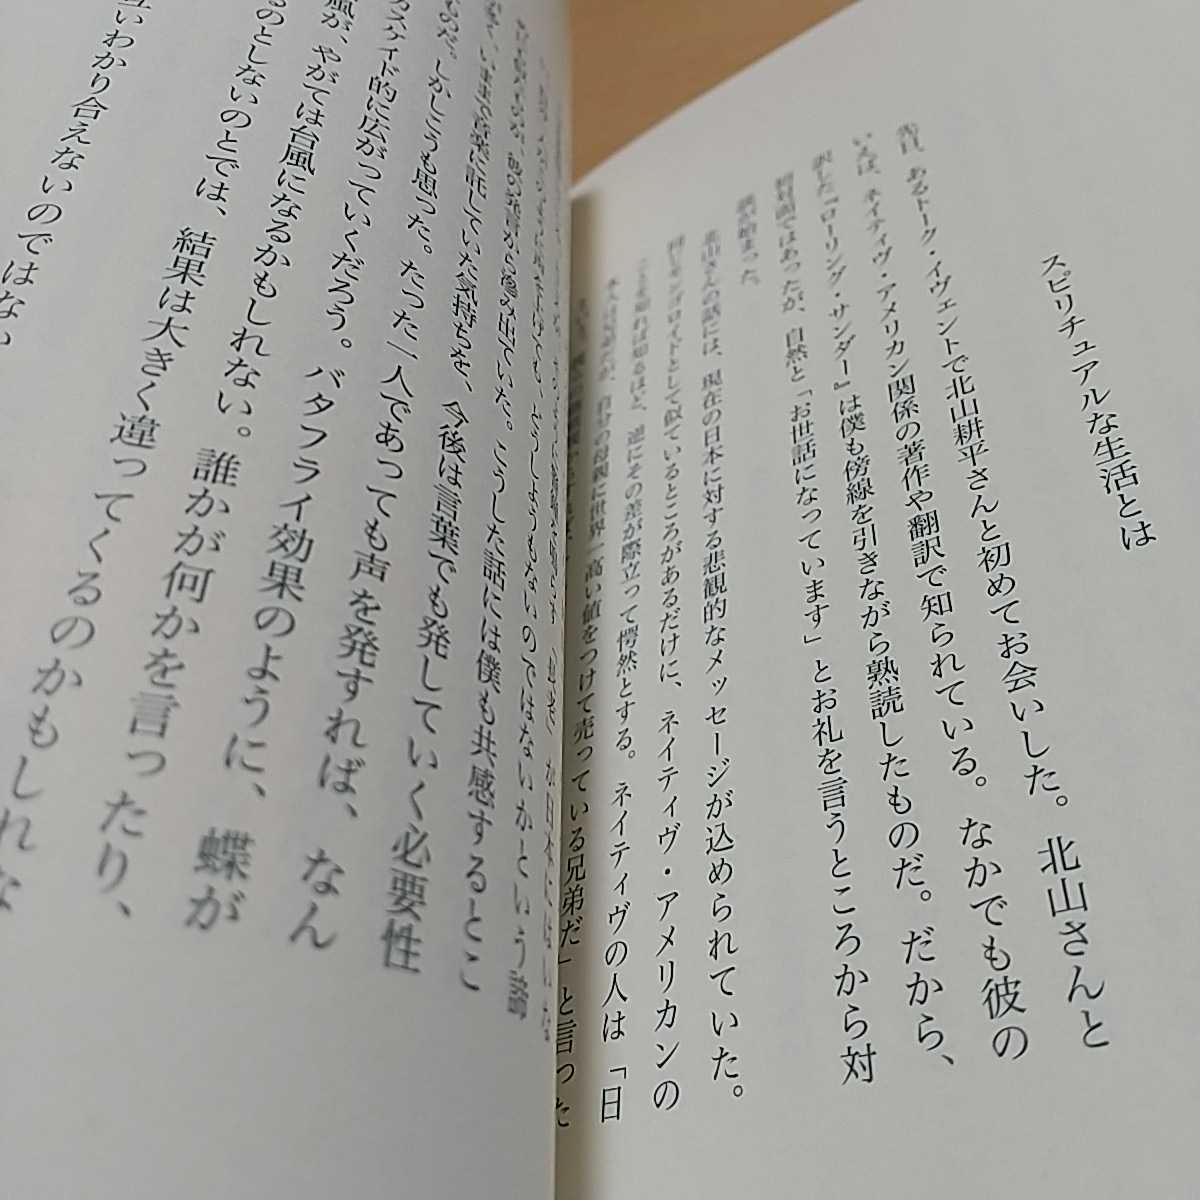 スピリチュアルな生活とは
先日、あるトーク・イヴェントで北山耕平さんと初めてお会いした。北山さんと
いえば、ネイティヴ・アメリカン関係の著作や翻訳で知られている。なかでも彼の
訳した『ローリング・サンダー』は僕も傍線を引きながら熟読したものだ。だから、
初対面ではあったが、自然と「お世話になっています」とお礼を言うところから対
談が始まった。
北山さんの話には、現在の日本に対する悲観的なメッセージが込められていた。
同じモンゴロイドとして似ているところがあるだけに、ネイティヴ・アメリカンの
ことを知れば知るほど、逆にその差が際立って愕然とする。ネイティヴの人は「日
本人は兄弟だが、自分の母親に世界一高い値をつけて売っている兄弟だ」と言った
どうしようもないのではないかという諦
彼の発言から滲み出ていた。こうした話には僕も共感するとこ
いままで音楽に託していた気持ちを、今後は言葉でも発していく必要性
のだ。しかしこうも思った。たった一人であっても声を発すれば、なん
カスケイド的に広がっていくだろう。バタフライ効果のように、蝶が
風が、やがては台風になるかもしれない。誰かが何かを言ったり、
るのとしないのとでは、結果は大きく違ってくるのかもしれな
互いわかり合えないのではない